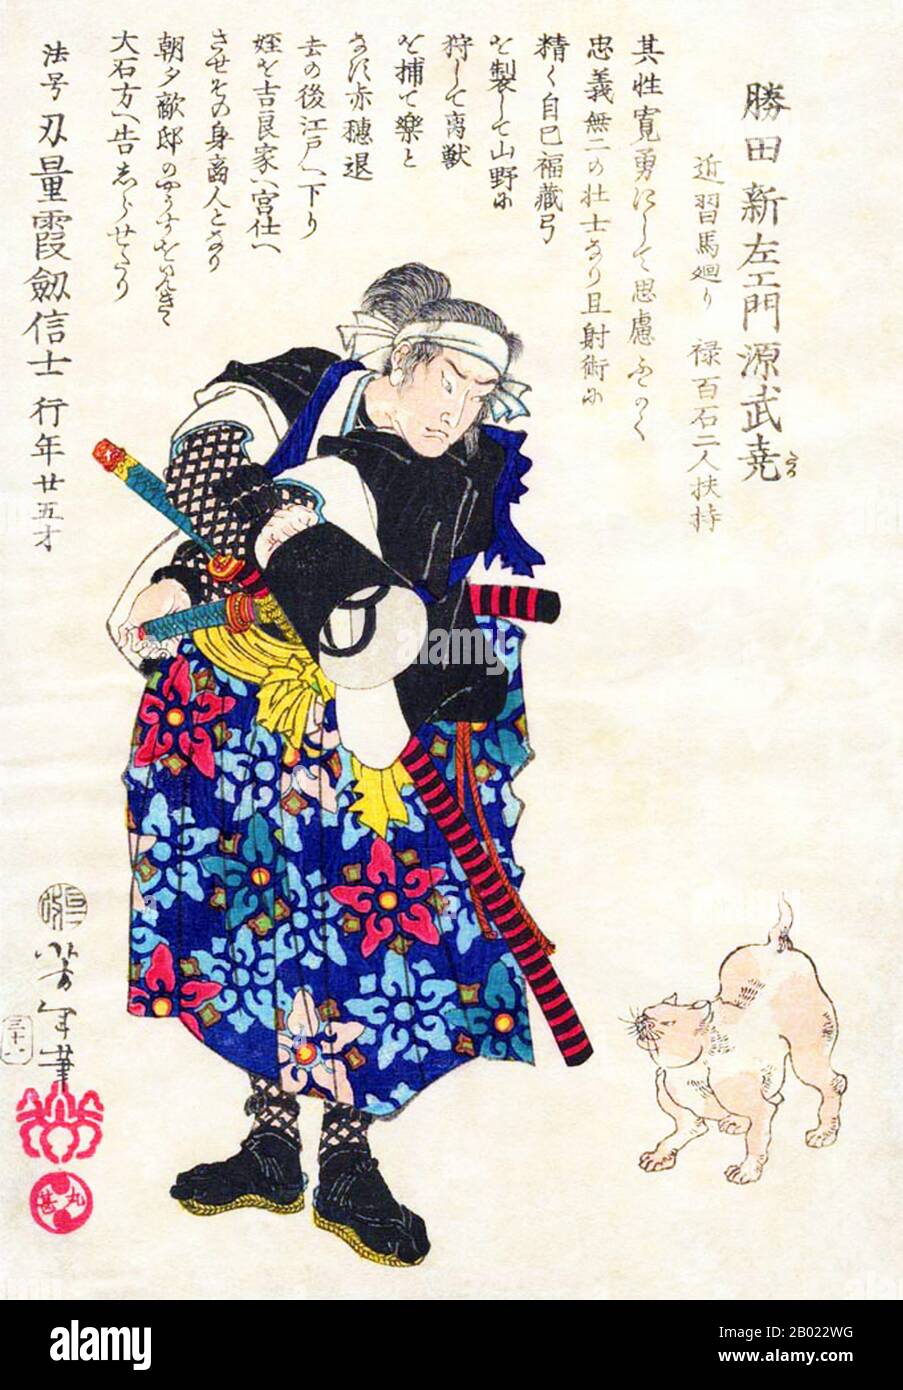 勝田新左エ門源武堯
たか
近習馬廻り　禄百石二人扶持
其性寛勇にして思慮ふかく
忠義無二の壮士なり且射術に
精く自己福藏弓
を製して山野に
狩して禽獣
を捕て樂と
なす赤穗退
去の後江戸へ下り
姪を吉良家へ宮仕へ
させその身商人となり
朝夕敵邸の
大石方へ告しらせたり
法号刃量霞劔信士　行年廿五才
芳年筆
三十八
丸甚
alamy
alamy
Image ID: 2B022WG
www.alamy.com